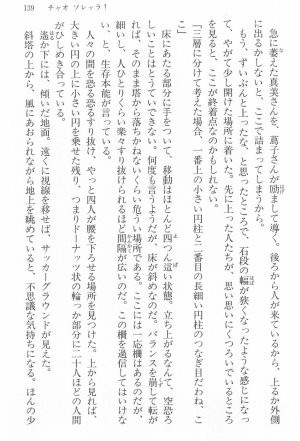 139　チャオ ソレッラ!
急に萎えた真美さんを、蔦子さんが励まして導く。後ろから人が来ているから、上るか外側
に出るかしないと、ここで詰まってしまうから。
もう、ずいぶんと上ったな、と思ったところで、石段の幅が狭くなったような感じになっ
て、やがて少し開けた場所に着いた。先に上った人たちが、思い思いにくつろいでいるところ
を見ると、ここが終着点なのかもしれない。
「三層に分けて考えた場合、一番上の小さい円柱と二番目の長細い円柱のつなぎ目だわね、こ
こ」
床にあたる部分に手をついて、移動はほとんど四つん這い状態。立ち上がるなんて、空恐ろ
しいことはとうていできない。何度も言うようだが、床が斜めなのだ。バランスを崩して転が
れば、そのまま塔から落ちかねないくらい危うい場所である。ここには一応柵はあるのだが、
細いし、人ひとりくらい楽々すり抜けられるほど間隔が広いのだ。この柵を過信してはいけな
い、と、生存本能が言っている。
人々の間を恐る恐るすり抜け、やっと四人が腰を下ろせる場所を見つけた。上から見れば、
大きい円の上に小さい円を乗せた残り、つまりドーナッツ状の輪っか部分に二十人ほどの人間
がひしめき合っている。
遙か下には、傾いた地面。遠くに視線を移せば、サッカーグラウンドが見えた。
斜塔の上から、風にあおられながら地上を眺めていると、不思議な気持ちになる。ほんの少